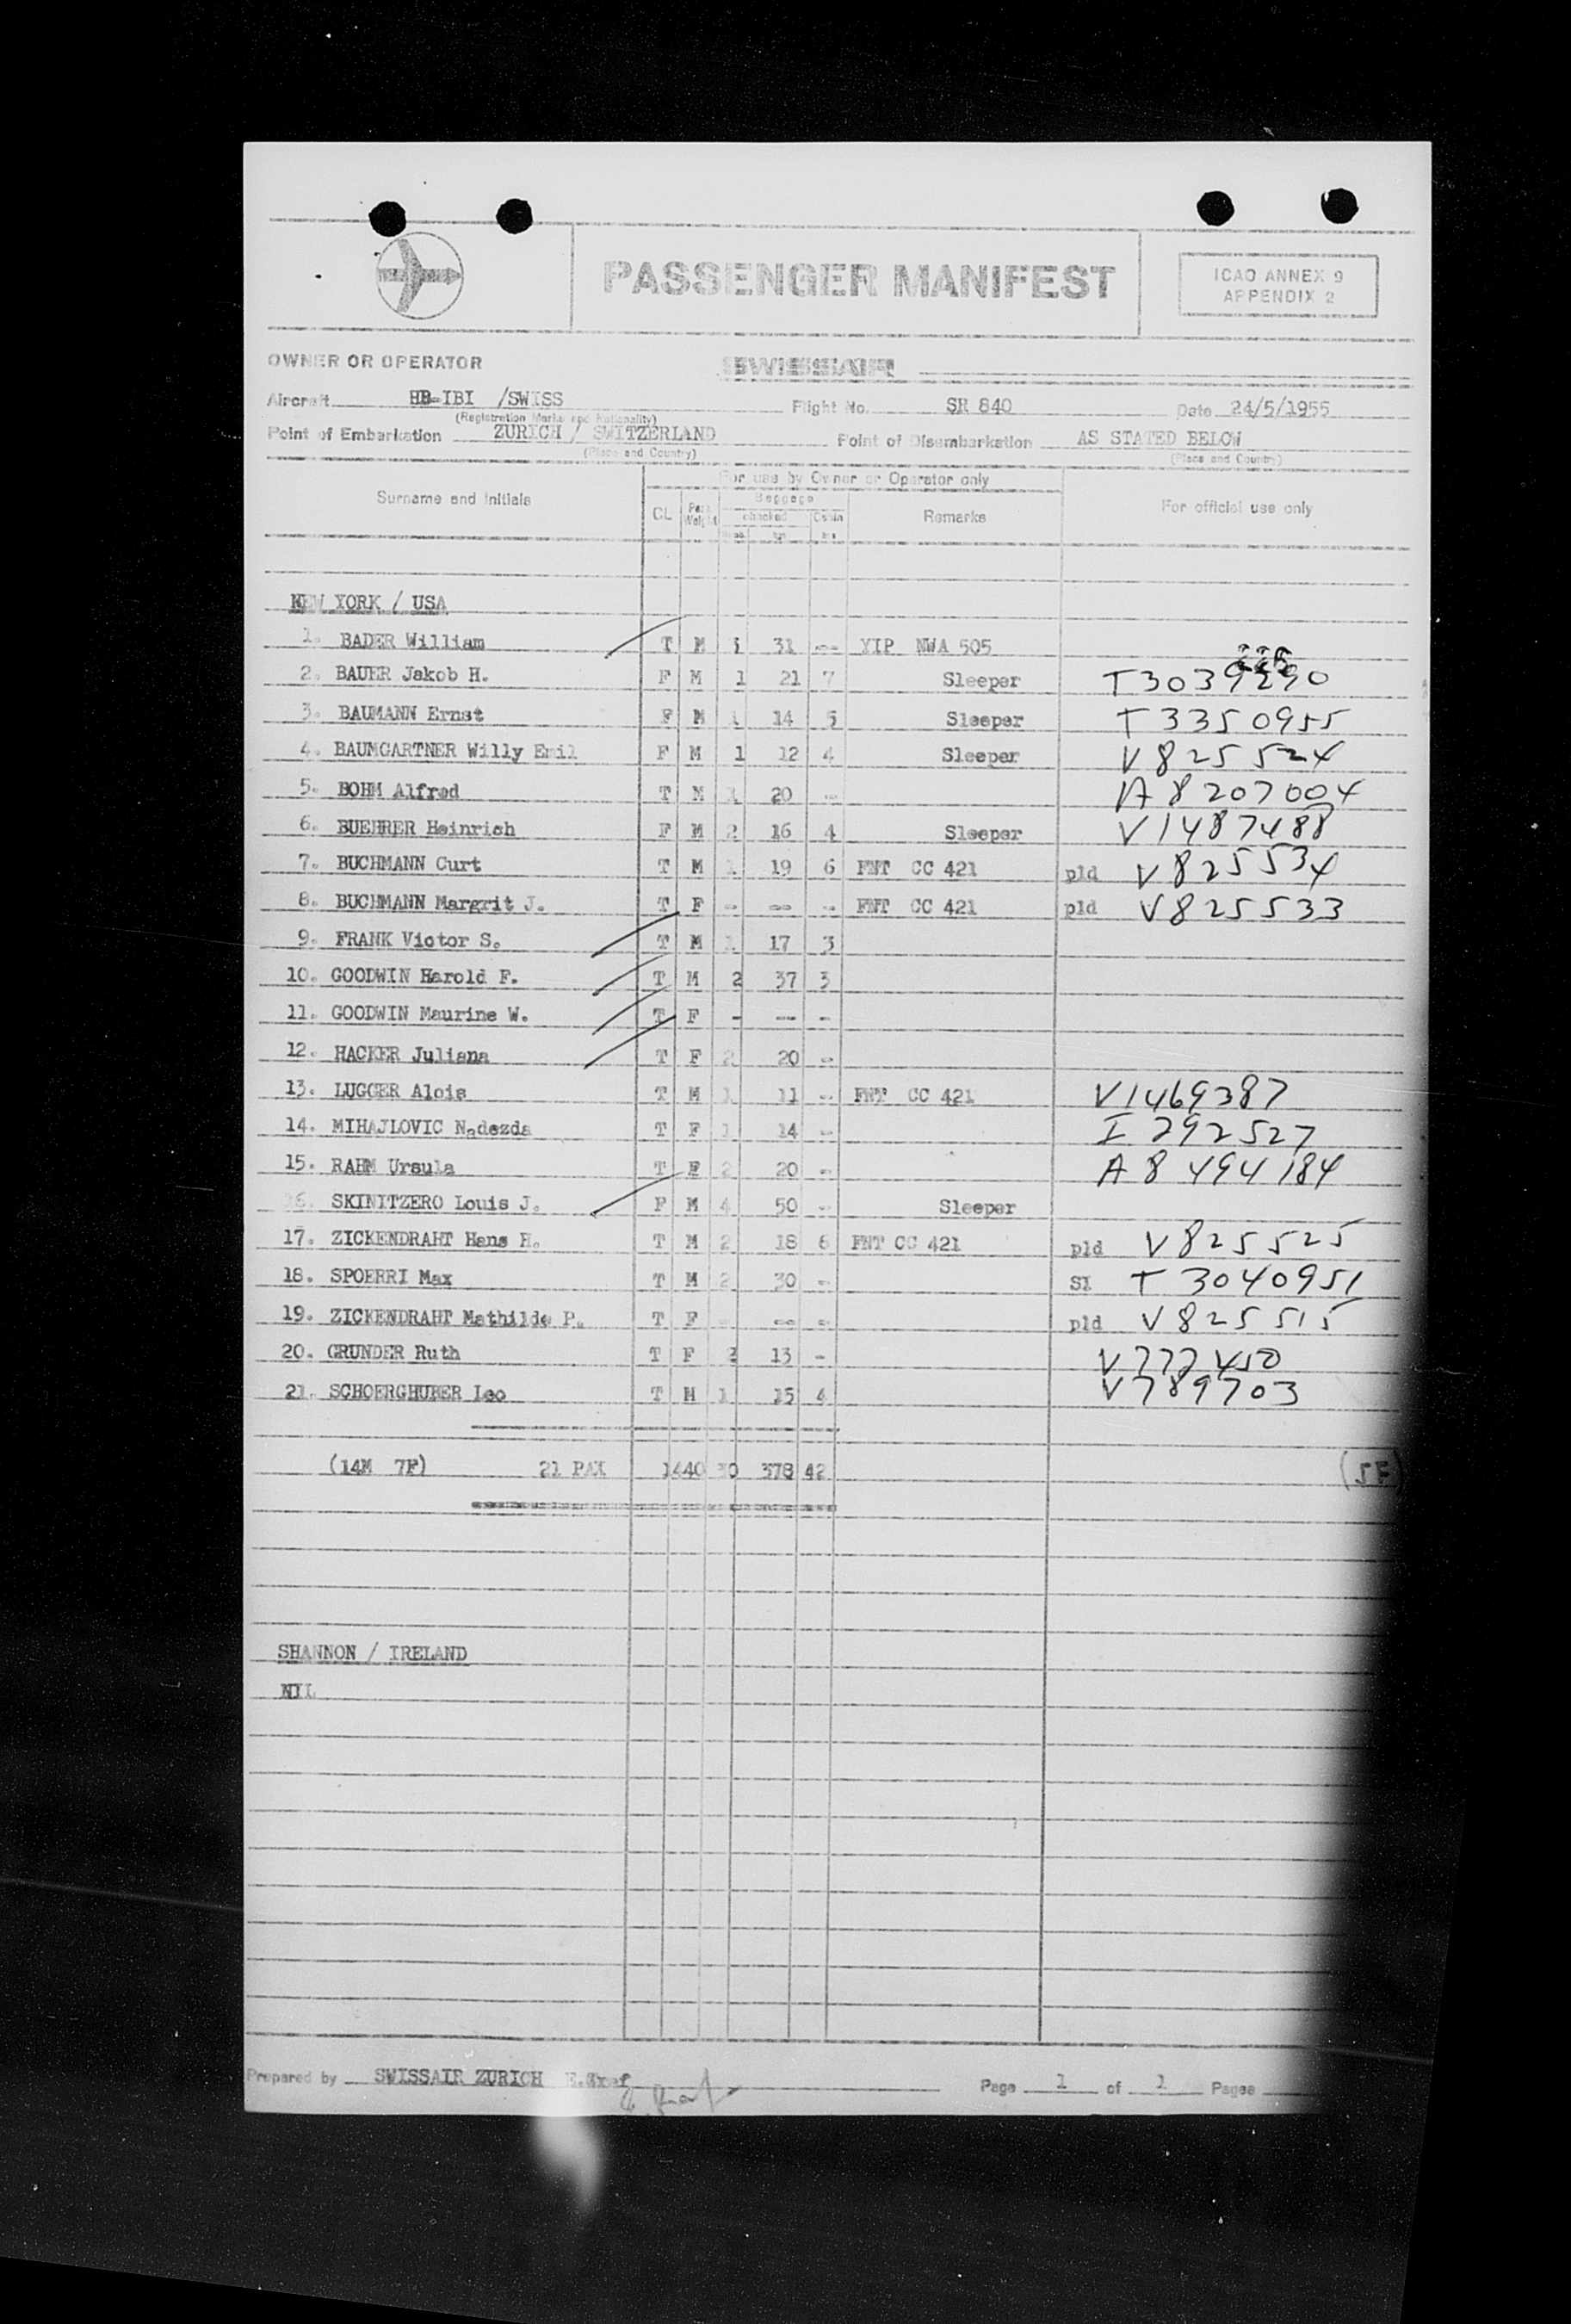 PASSENGER MANIFEST
ICAO ANNEX 9
APPENDIX 2
OWNER OR OPERATOR SWISSAIR
Aircraft HB-IBI /SWISS Flight No. SR 840 Date 24/5/1955
(Registration Marks and Nationality)
Point of Embarkation ZURICH / SWITZERLAND Point of Disembarkation AS STATED BELOW
(Place and Country) (Place and Country)
For use by Owner or Operator only
Surname and initials CL Pass Weight Baggage checked Cabin Remarks For official use only
NEW YORK / USA
1. BADER William T M 1 31 -- YIP NWA 505
2. BAUER Jakob H. F M 1 21 7 Sleeper T3039290
3. BAUMANN Ernst F M 1 14 5 Sleeper T3350955
4. BAUMGARTNER Willy Emil F M 1 12 4 Sleeper V825524
5. BOHM Alfred T M 1 20 - A8207004
6. BUEHRER Heinrich F M 2 16 4 Sleeper V1487488
7. BUCHMANN Curt T M 1 19 6 FNT CC 421 pld V825534
8. BUCHMANN Margrit J. T F - -- - FNT CC 421 pld V825533
9. FRANK Victor S. T M 1 17 3
10. GOODWIN Harold F. T M 2 37 3
11. GOODWIN Maurine W. T F - -- -
12. HACKER Juliana T F 2 20 -
13. LUGGER Alois T M 1 11 - FNT CC 421 V1469387
14. MIHAJLOVIC Nadezda T F 1 14 - I 292527
15. RAHM Ursula T F 2 20 - A8 494184
16. SKINITZERO Louis J. F M 4 50 - Sleeper
17. ZICKENDRAHT Hans H. T M 2 18 6 FNT CC 421 pld V825525
18. SPOERRI Max T M 2 30 - SI T 3040951
19. ZICKENDRAHT Mathilde P. T F - -- - pld V825515
20. GRUNDER Ruth T F 2 13 - V777450
21. SCHOERGHUBER Leo T M 1 15 4 V789703
(14M 7F) 21 PAX 1440 30 378 42 (5F)
SHANNON / IRELAND
NIL
Prepared by SWISSAIR ZURICH E.Graf
Page 1 of 1 Pages